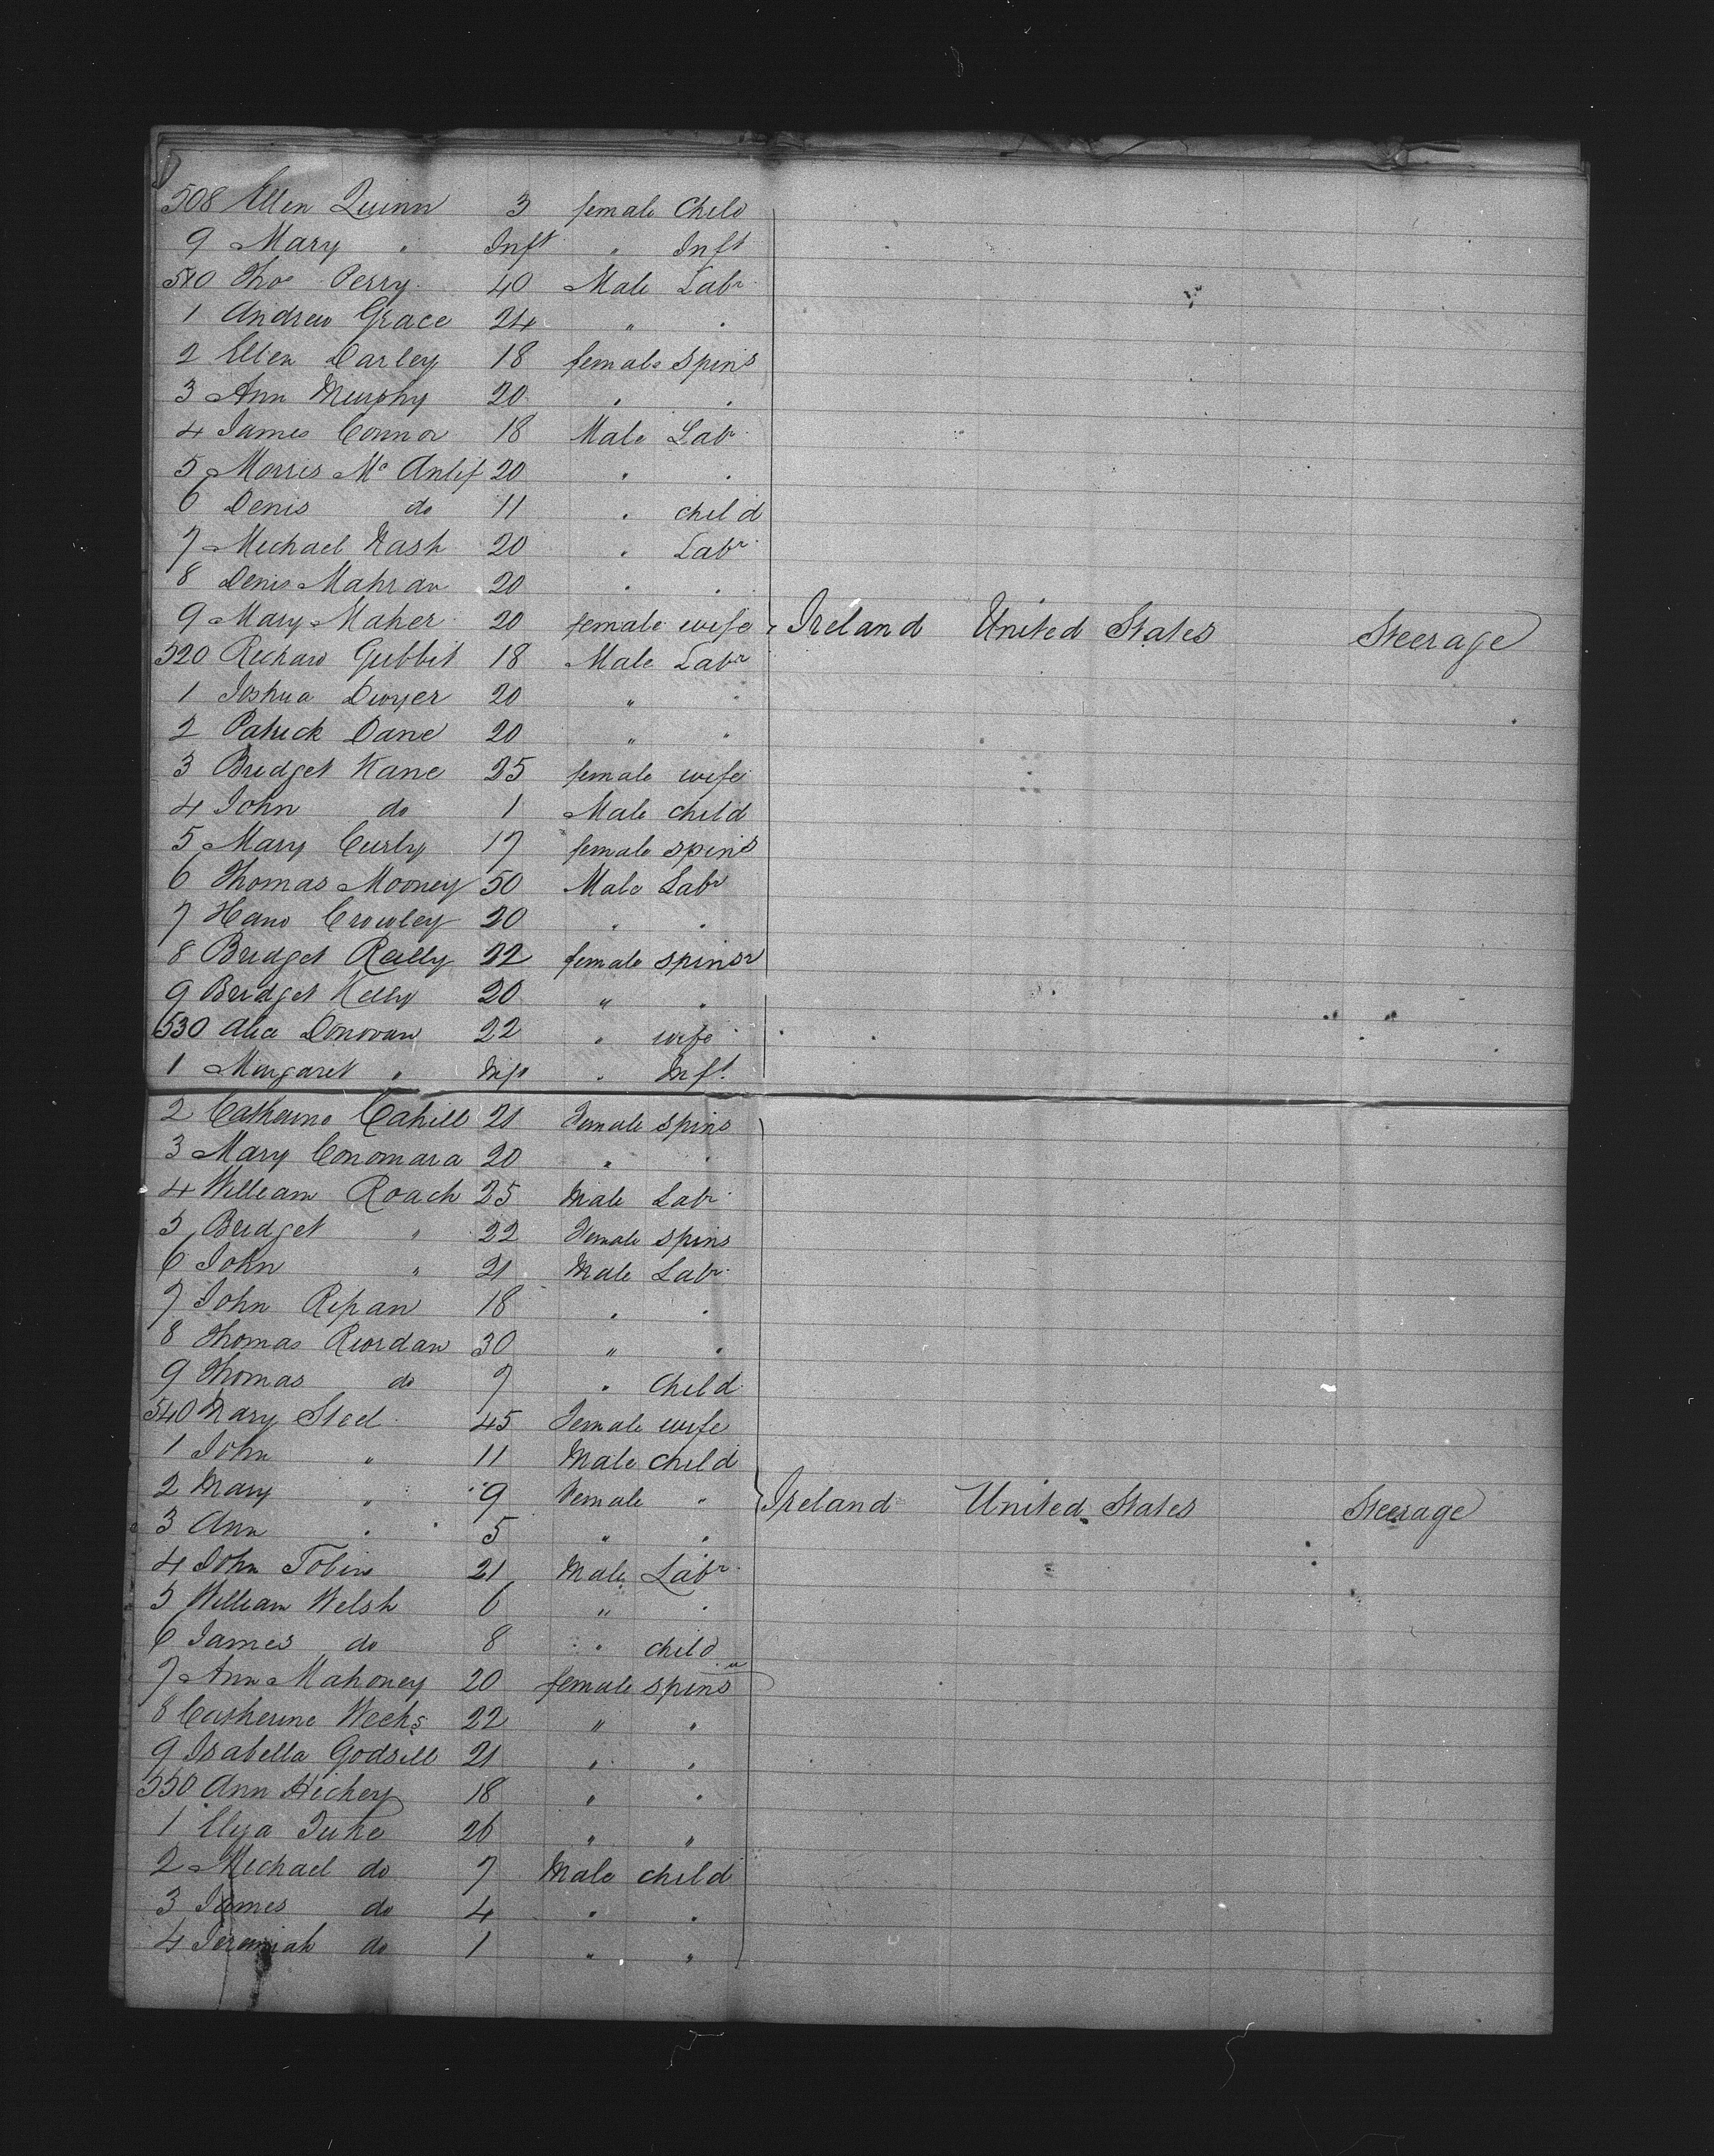 508 Ellen Quinn 3 female Child
9 Mary " Inft " Inft
510 Thos Perry 40 Male Labr
1 Andrew Grace 24 " "
2 Ellen Darley 18 female Spins
3 Ann Murphy 20 " "
4 James Connor 18 Male Labr
5 Morris Mc Anlif 20 " "
6 Denis do 11 " child
7 Michael Nash 20 " Labr
8 Denis Mahran 20 " "
9 Mary Maher 20 female wife Ireland United States Steerage
520 Richard Gubbit 18 Male Labr
1 Joshua Dwyer 20 " "
2 Patrick Dane 20 " "
3 Bridget Kane 25 female wife
4 John do 1 Male child
5 Mary Curly 17 female spins
6 Thomas Mooney 50 Male Labr
7 Crowley 20 " "
8 Bridget Reilly 22 female spinsr
9 Bridget Kelly 20 " "
530 Alice Donovan 22 " wife
1 Margaret " Inft " Inft
2 Catherine Cahill 21 Female spins
3 Mary Conomara 20 " "
4 William Roach 25 Male Labr
5 Bridget " 22 Female spins
6 John " 21 Male Labr
7 John Repan 18 " "
8 Thomas Riordan 30 " "
9 Thomas do 7 " Child
540 Mary Steel 45 Female wife
1 John " 11 Male child
2 Mary " 9 Female " Ireland United States Steerage
3 Ann " 5 " "
4 John Tobin 21 Male Labr
5 William Welsh 6 " "
6 James do 8 " child
7 Ann Mahoney 20 female spins
8 Catherine Weeks 22 " "
9 Isabella Godsill 21 " "
550 Ann Hickey 18 " "
1 Eliza Tuke 26 " "
2 Michael do 7 Male child
3 James do 4 " "
4 Jeremiah do 1 " "